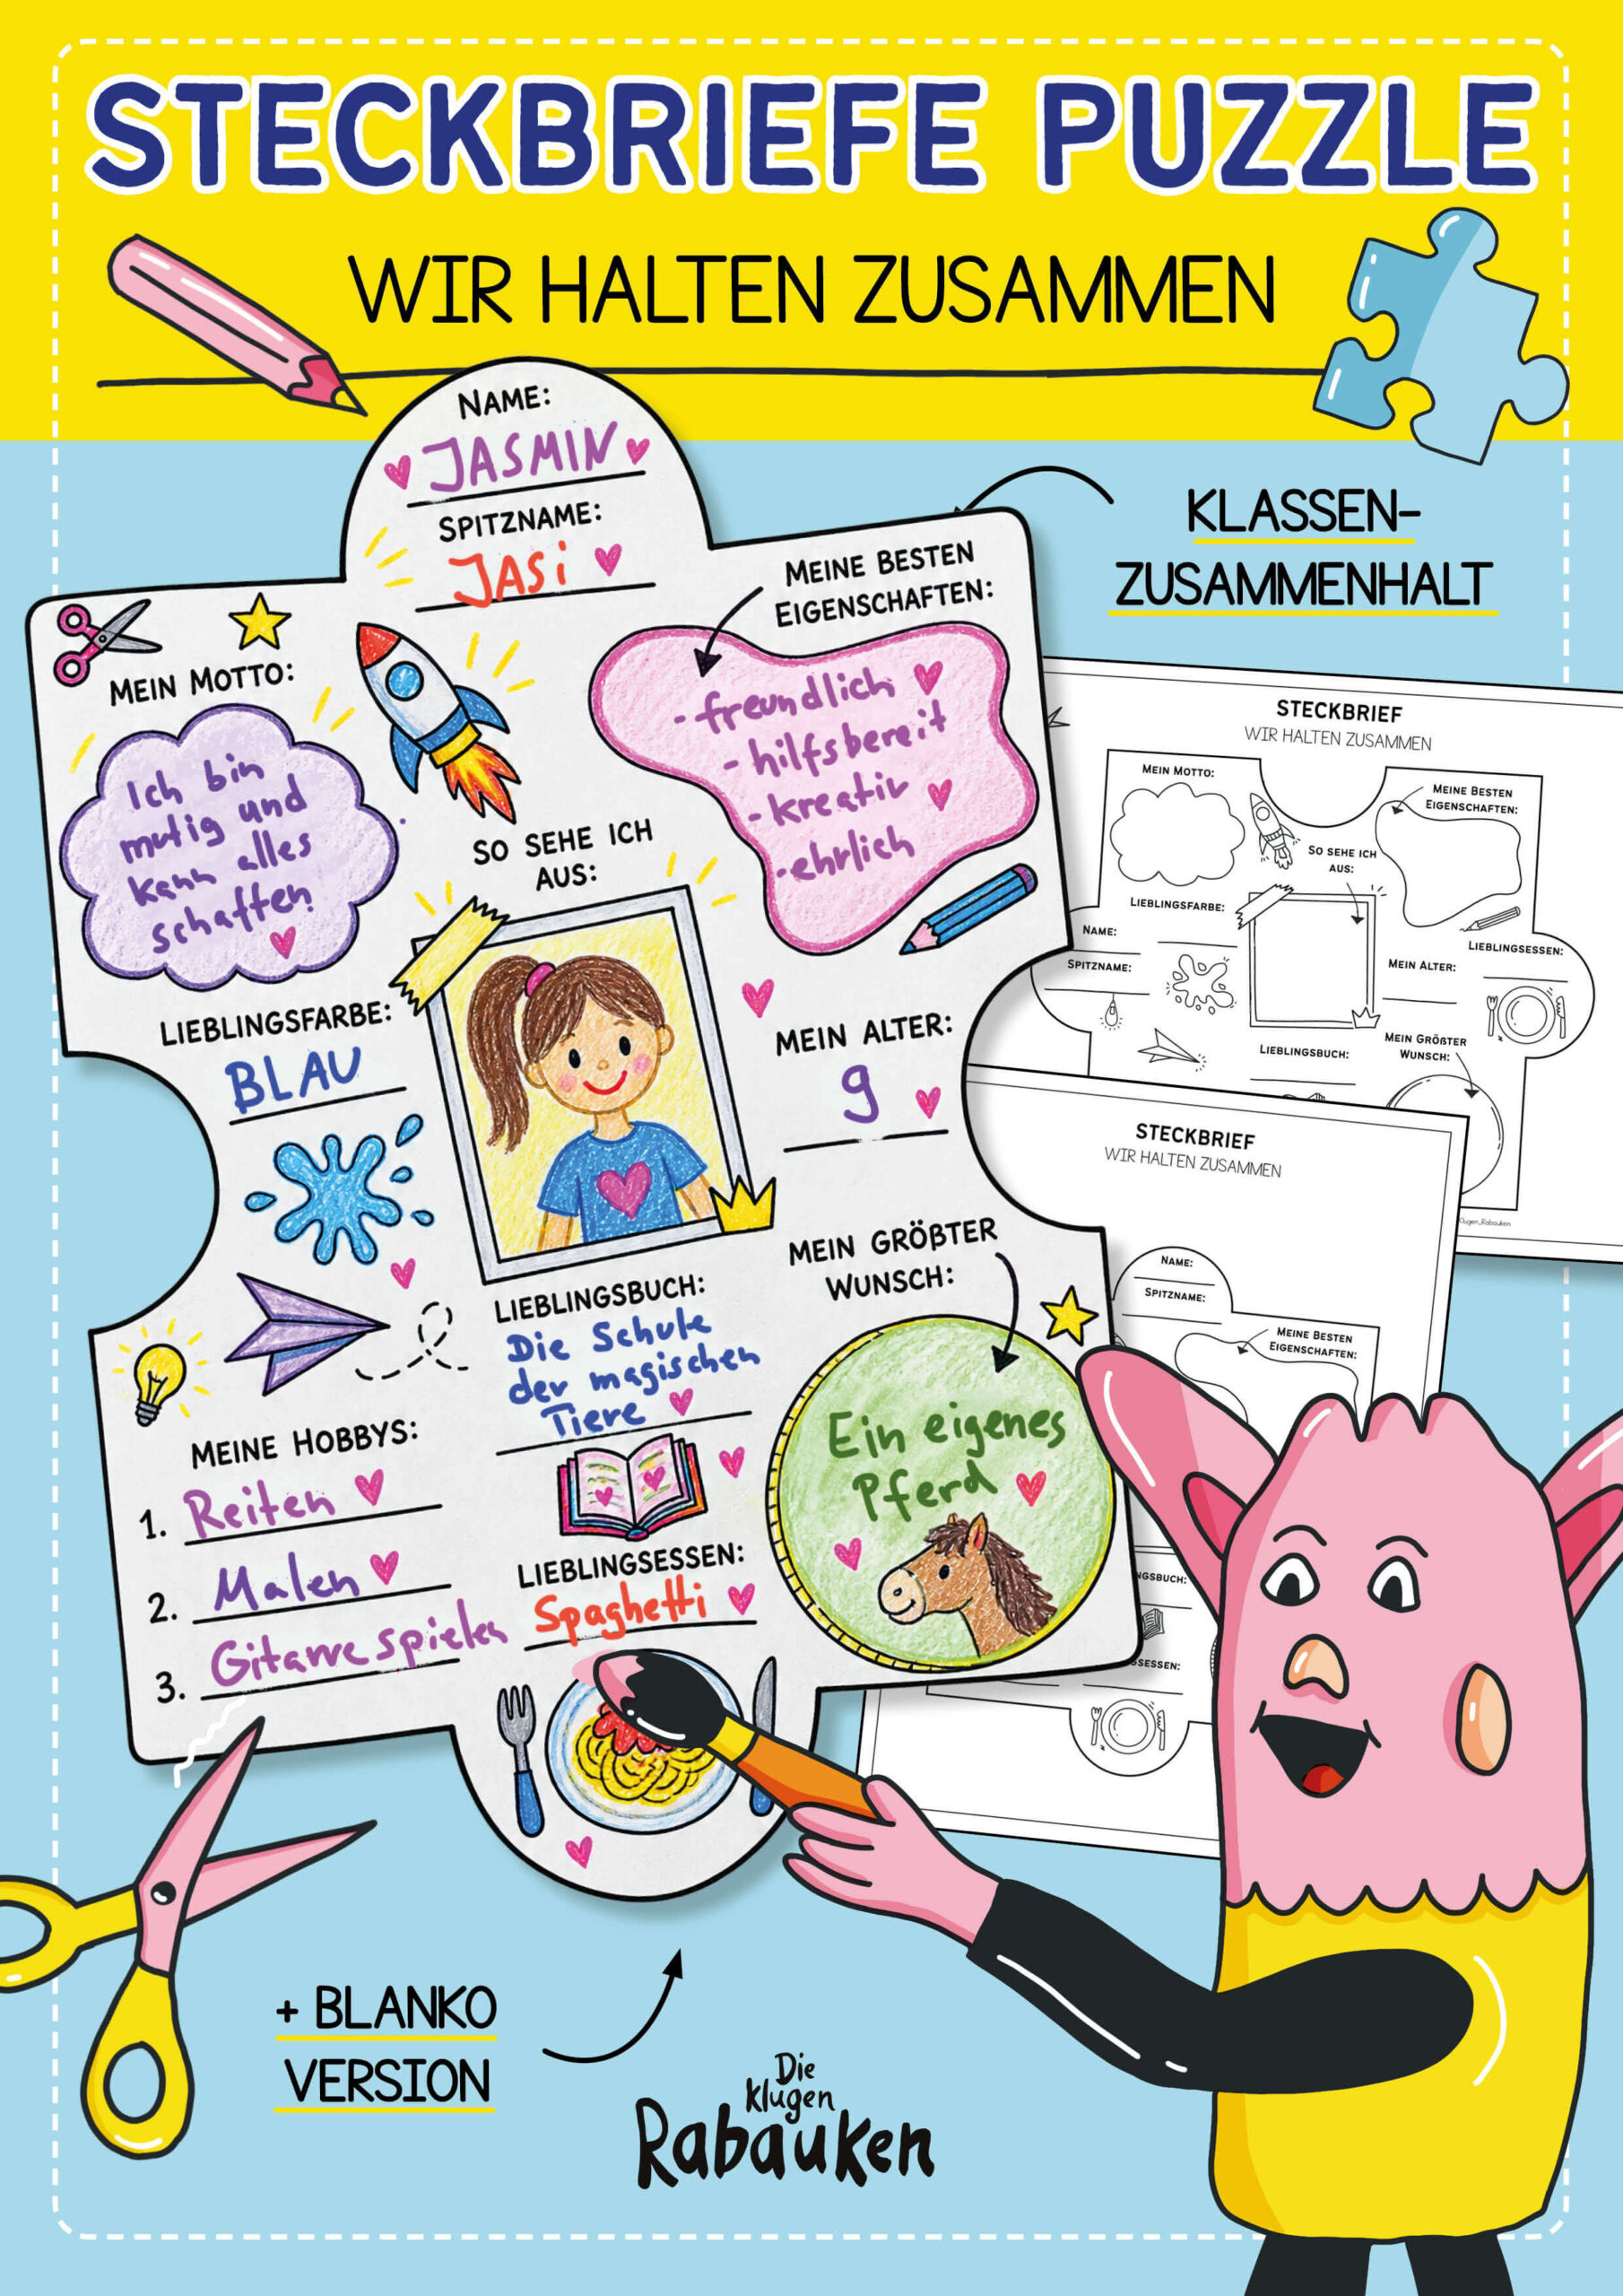 STECKBRIEFE PUZZLE
WIR HALTEN ZUSAMMEN
NAME:
JASMIN
SPITZNAME:
JASi
KLASSEN-
ZUSAMMENHALT
MEIN MOTTO:
Ich bin
mutig und
kann alles
schaffen
MEINE BESTEN
EIGENSCHAFTEN:
- freundlich
- hilfsbereit
- kreativ
- ehrlich
SO SEHE ICH
AUS:
LIEBLINGSFARBE:
BLAU
MEIN ALTER:
9
MEIN GRÖßTER
WUNSCH:
Ein eigenes
Pferd
LIEBLINGSBUCH:
Die Schule
der magischen
Tiere
MEINE HOBBYS:
1. Reiten
2. Malen
3. Gitarre spielen
LIEBLINGSESSEN:
Spaghetti
STECKBRIEF
WIR HALTEN ZUSAMMEN
MEIN MOTTO:
MEINE BESTEN
EIGENSCHAFTEN:
SO SEHE ICH
AUS:
LIEBLINGSFARBE:
NAME:
SPITZNAME:
MEIN ALTER:
LIEBLINGSESSEN:
MEIN GRÖßTER
WUNSCH:
LIEBLINGSBUCH:
STECKBRIEF
WIR HALTEN ZUSAMMEN
NAME:
SPITZNAME:
MEINE BESTEN
EIGENSCHAFTEN:
NGSBUCH:
SESSEN:
+ BLANKO
VERSION
Die
klugen
Rabauken